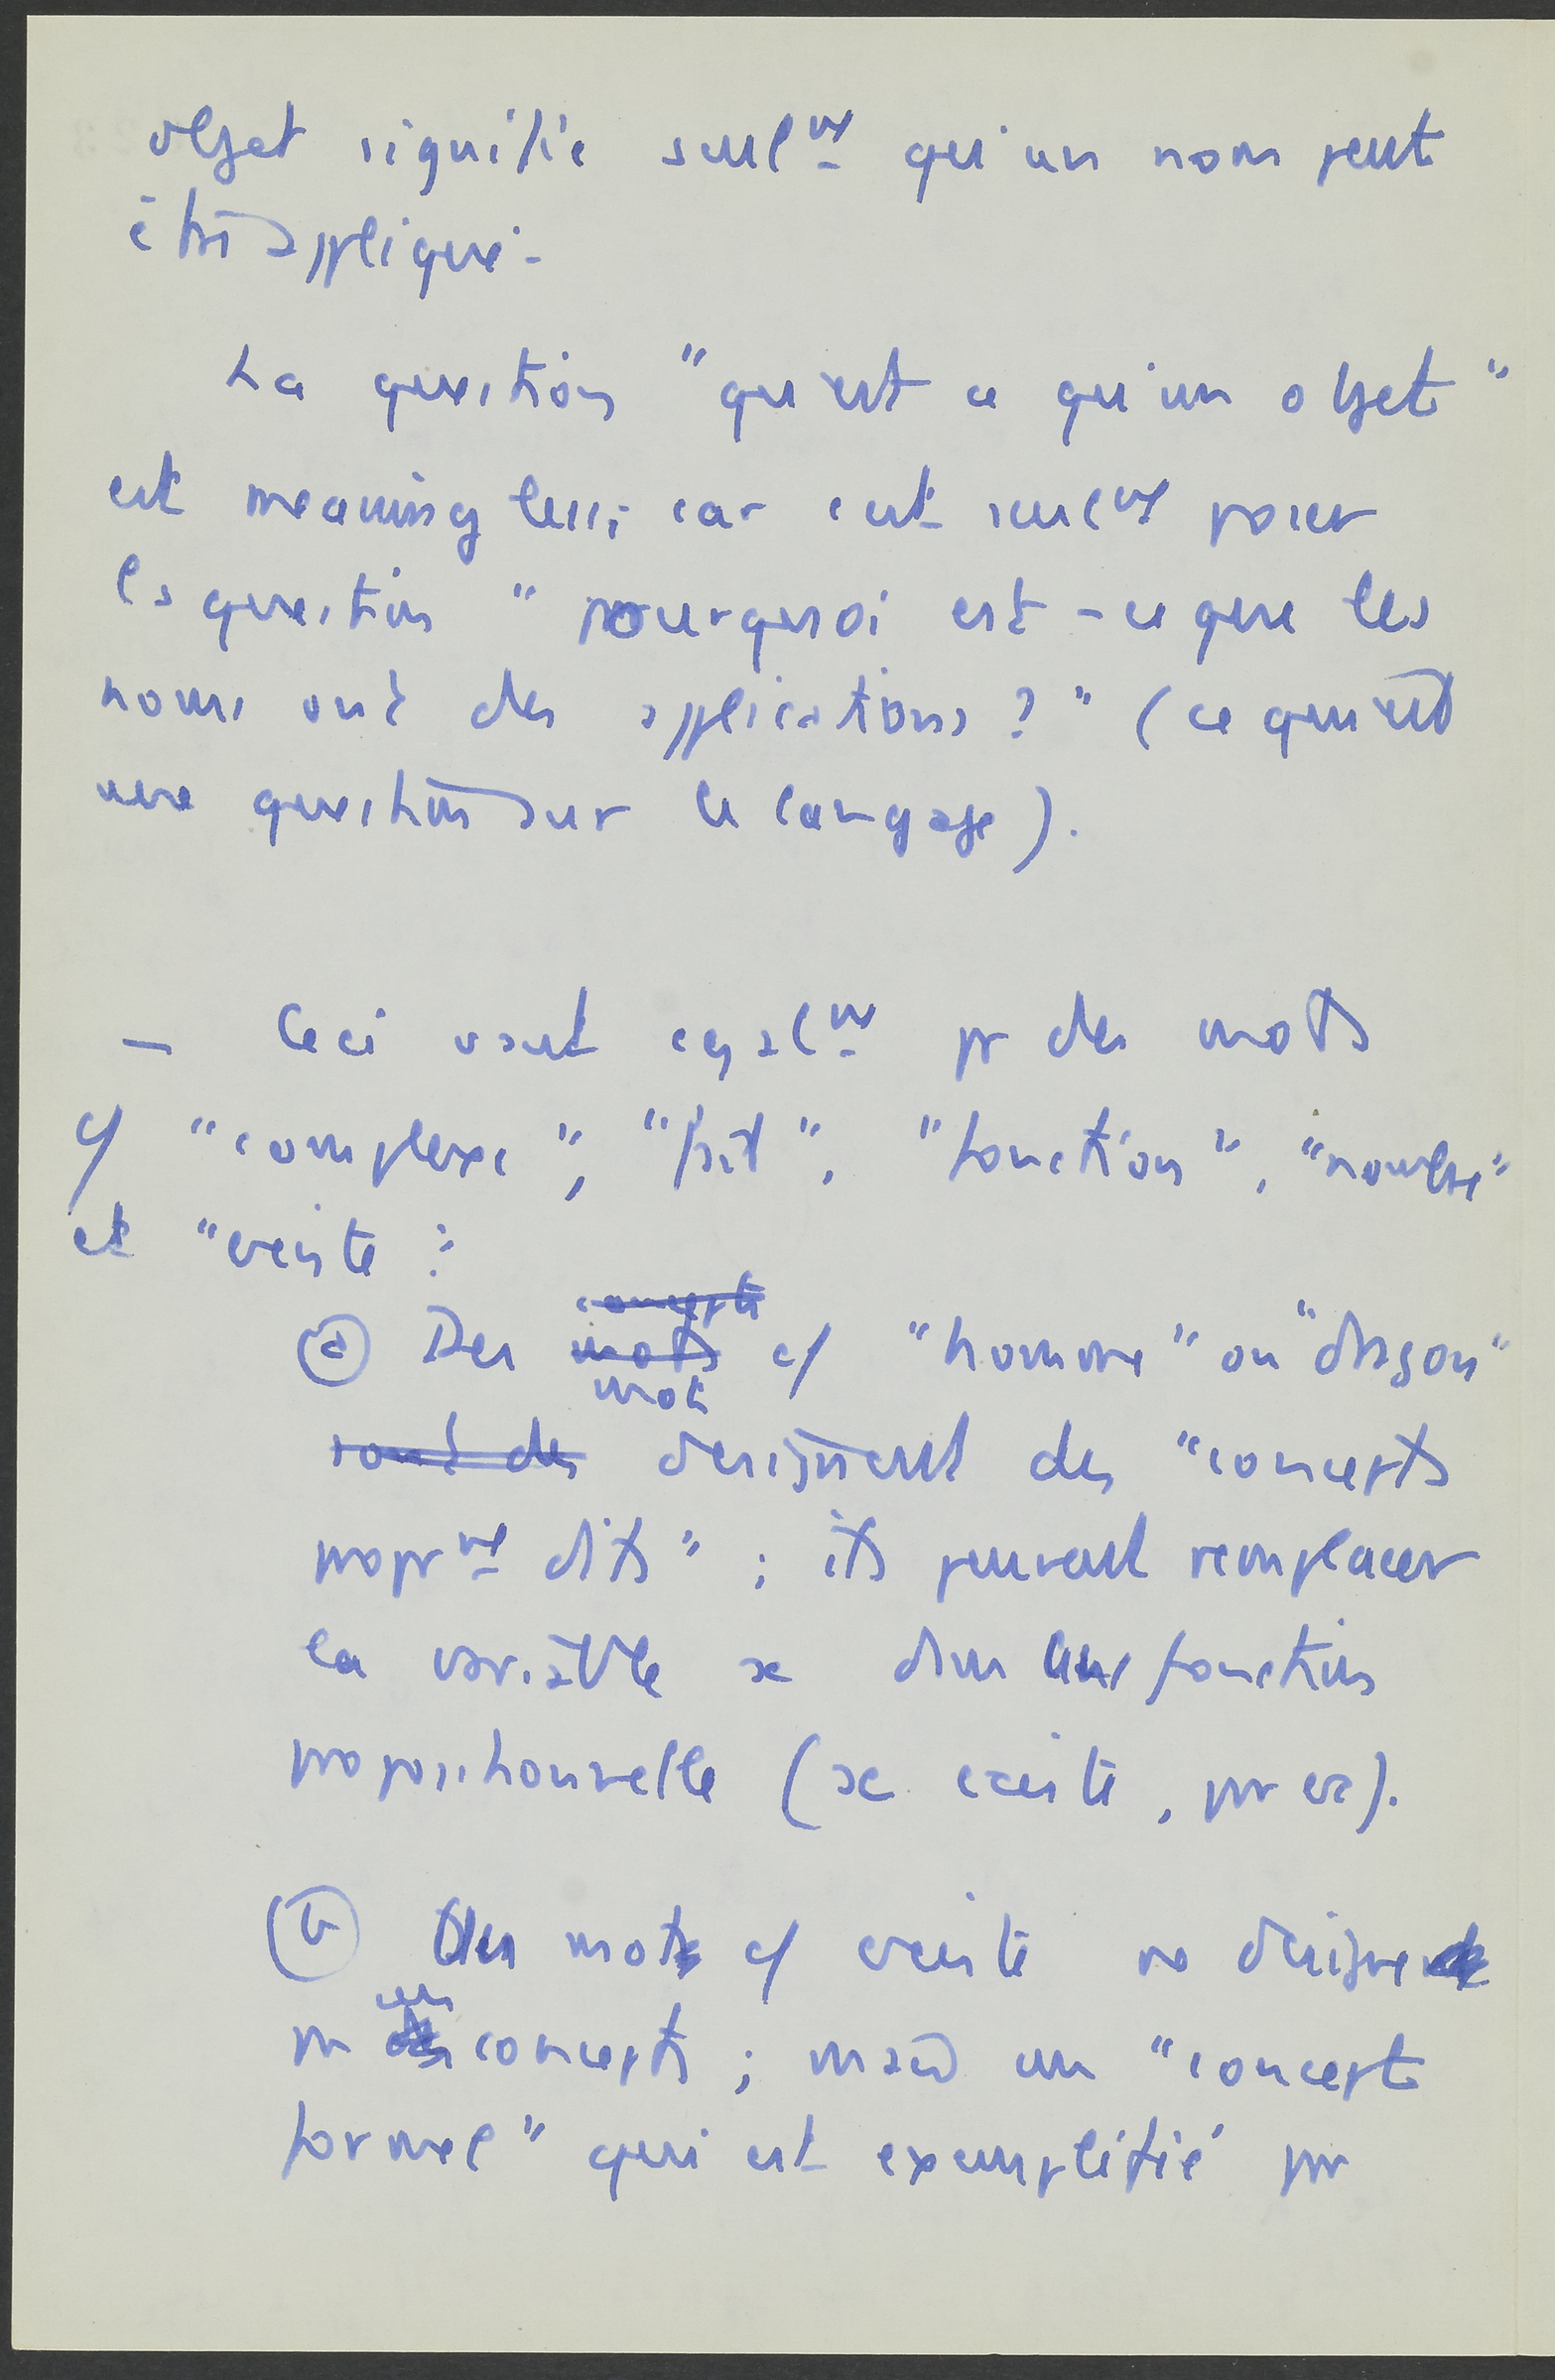 objet signifie seulᵐᵗ qu'un nom peut
être appliqué.
La question "qu'est ce qu'un objet"
est meaningless; car c'est seulᵐᵗ poser
la question "pourquoi est-ce que les
noms ont des applications ?" (ce qui est
une question sur le langage).
— Ceci vaut egalᵐᵗ pr des mots
cf "complexe", "fait", "fonction", "nombre"
et "existe" :
concepts
(a) Des mots cf "homme" ou "dragon"
mots
sont des designent des "concepts
proprᵐᵗ dits" ; ils peuvent remplacer
la variable x dans une fonction
propositionnelle (x existe, par ex).
(b) Des mots cf existe ne designe
un
pas des concepts ; mais un "concept
formel" qui est exemplifié par